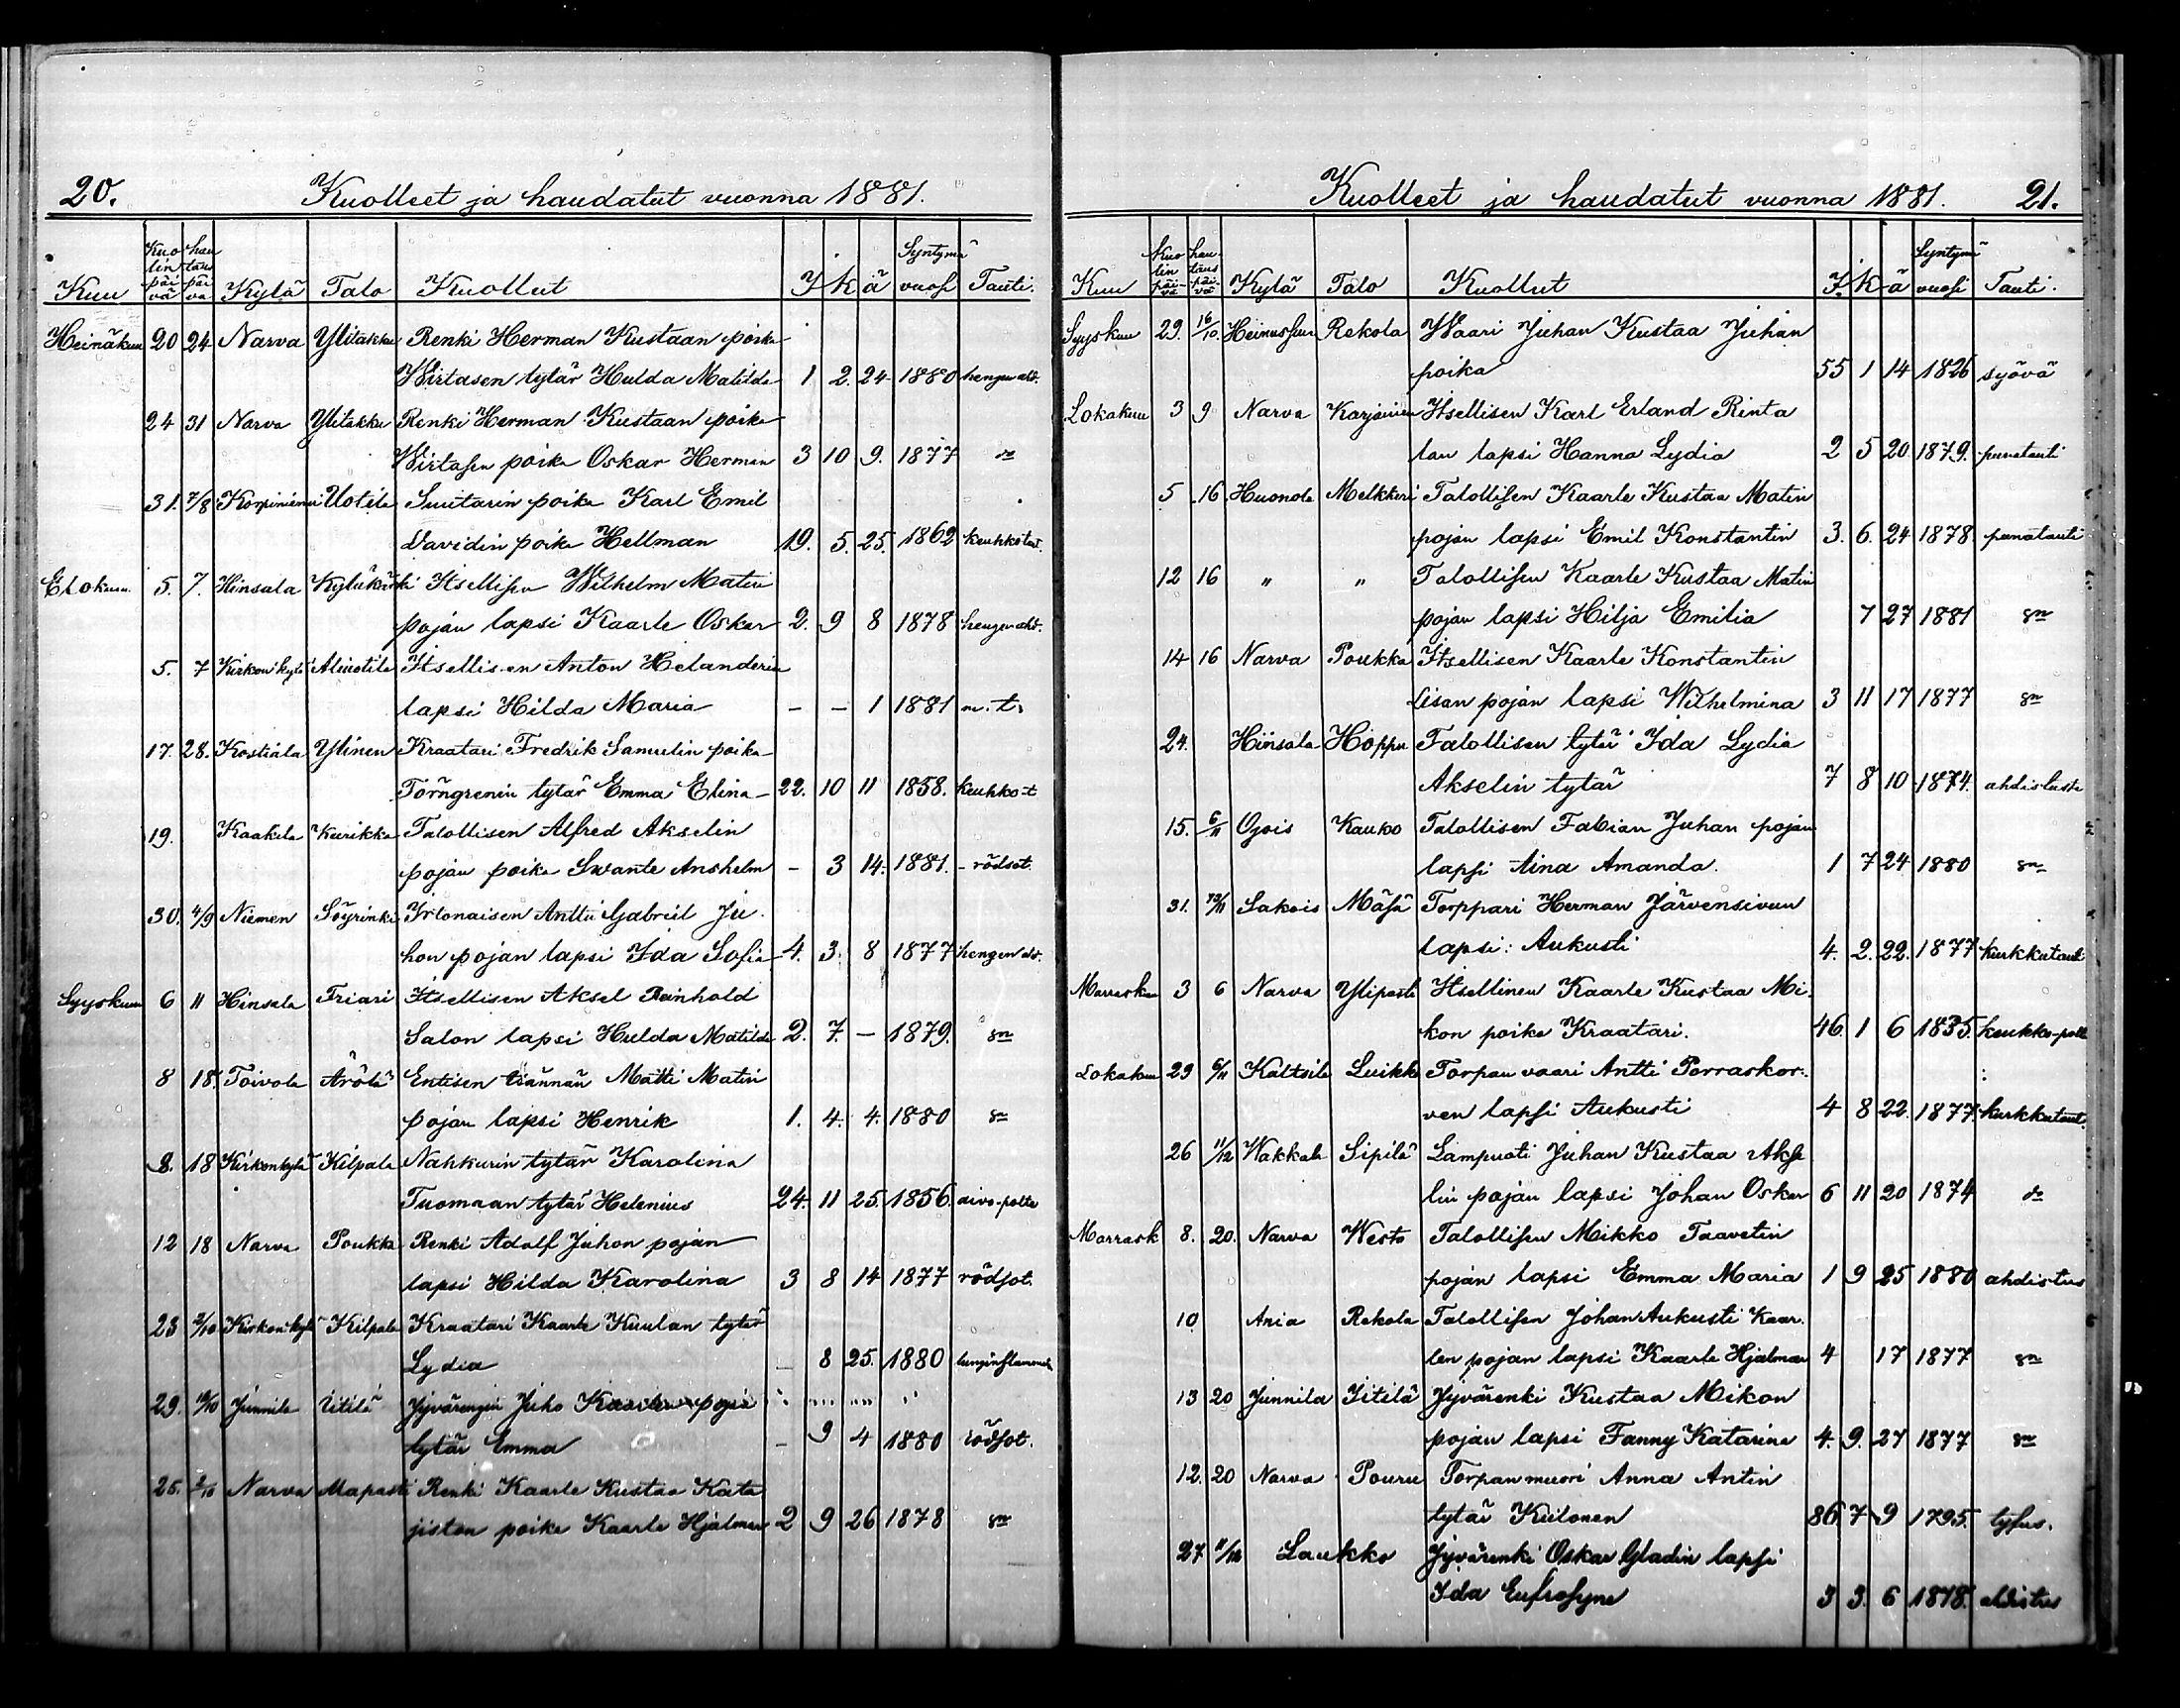 20. Kuolleet ja haudatut vuonna 1881.
Kuu Kuolinpäivä hautauspäivä Kylä Talo Kuollut I k ä Syntymä vuosi Tauti.
Heinäkuu 20 24 Narva Ylitakku Renki Herman Kustaan poika
Wirtasen tytär Hulda Matilda 1. 2. 24 1880 hengen ahd.
24 31 Narva Ylitakku Renki Herman Kustaan poika
Wirtasen poika Oskar Herman 3 10 9. 1877 do
31. 7/8 Korpiniemi Uotila Suutarin poika Karl Emil
Davidin poika Hellman 19. 5. 25. 1862 keuhkotaut.
Elokuu 5. 7. Hinsala Itsellisen Wilhelm Matin
pojan lapsi Kaarle Oskar 2. 9 8 1878 hengen ahd.
5. 7 Kirkonkylä Aliuotila Itsellisen Anton Helanderin
lapsi Hilda Maria – – 1 1881 m. t.
17. 28. Kostiala Ylinen Kraatari Fredrik Samulin poika
Törngrenin tytär Emma Elina 22. 10 11 1858. keuhko-t
19. Kaakila Kurikka Talollisen Alfred Akselin
pojan poika Swante Anshelm – 3 14. 1881. rödsot
30. 4/9 Niemen Söyrinki Irtonaisen Antti Gabriel Ju-
hon pojan lapsi Ida Sofia 4. 3. 8 1877 hengen ahd.
Syyskuu 6 11 Hinsala Friari Itsellisen Aksel Reinhold
Salon lapsi Hulda Matilda 2. 7. – 1879. sm
8 18. Toivola Arölä Entisen isännän Matti Matin
pojan lapsi Henrik 1. 4. 4. 1880 sm
8. 18 Kirkonkylä Kilpala Nahkurin tytär Karolina
Tuomaan tytär Helenius 24. 11 25. 1856. aivo-polte
12 18 Narva Poukka Renki Adolf Juhon pojan
lapsi Hilda Karolina 3 8 14 1877 rödsot.
23 Kirkonkylä Kilpala Kraatari Kaarle Kuulan tytär
Lydia – 8 25. 1880
29. Junnila Iitilä Jyvärengin Juho Kaarlen pojan
tytär Emma – 9 4 1880 rödsot.
25. 2/10 Narva Mapasti Renki Kaarle Kustaa Kata
jiston poika Kaarle Hjalmar 2 9 26 1878 sm
Kuolleet ja haudatut vuonna 1881. 21.
Kuu Kuolinpäivä hautauspäivä Kylä Talo Kuollut I k ä Syntymä vuosi Tauti.
Syyskuu 29. 16/10. Heinussuu Rekola Waari Juhan Kustaa Juhan
poika 55 1 14 1826 syövä
Lokakuu 3 9 Narva Karjainen Itsellisen Karl Erland Rinta
lan lapsi Hanna Lydia 2 5 20. 1879. punatauti
5 16 Huonola Melkkeri Talollisen Kaarle Kustaa Matin
pojan lapsi Emil Konstantin 3. 6. 24 1878. punatauti
12 16 " " Talollisen Kaarle Kustaa Matin
pojan lapsi Hilja Emilia 7 27 1881 sm
14 16 Narva Poukka Itsellisen Kaarle Konstantin
Lisan pojan lapsi Wilhelmina 3 11 17 1877 sm
24. Hinsala Hoppu Talollisen tytär Ida Lydia
Akselin tytär 7 8 10 1874. ahdistusta
15. 6/11 Ojois Kauko Talollisen Fabian Juhan pojan
lapsi Aina Amanda. 1 7 24 1880 sm
31. 13/11 Sakois Mäsä Torppari Herman Järvensivun
lapsi: Aukusti 4. 2. 22. 1877 kurkkutauti
Marraskuu 3 6 Narva Ylipasti Itsellinen Kaarle Kustaa Mi-
kon poika Kraatari. 46. 1 6 1835. keuhko-polte
Lokakuu 29 6/11 Kaltsila Luikku Torpan vaari Antti Porraskor-
ven lapsi Aukusti 4 8 22. 1877. kurkkutaut.
26 11/12 Wakkala Sipilä Lampuoti Juhan Kustaa Akse
lin pojan lapsi Johan Oskar 6 11 20 1874 do
Marrask 8. 20. Narva Westo Talollisen Mikko Taavetin
pojan lapsi Emma Maria 1 9 25 1880 ahdistus
10 Ania Rekola Talollisen Johan Aukusti Kaar-
len pojan lapsi Kaarle Hjalmar 4 17 1877 sm
13 20 Junnila Iitilä Jyvärenki Kustaa Mikon
pojan lapsi Fanny Katarina 4. 9. 27 1877 sm
12. 20 Narva Pouru Torpan muori Anna Antin
tytär Kiilonen 86. 7 9 1795. tyfus.
27 11/12 Laukko Jyvärenki Oskar Gladin lapsi
Ida Eufrosyne 3 3. 6 1878. ahdistus